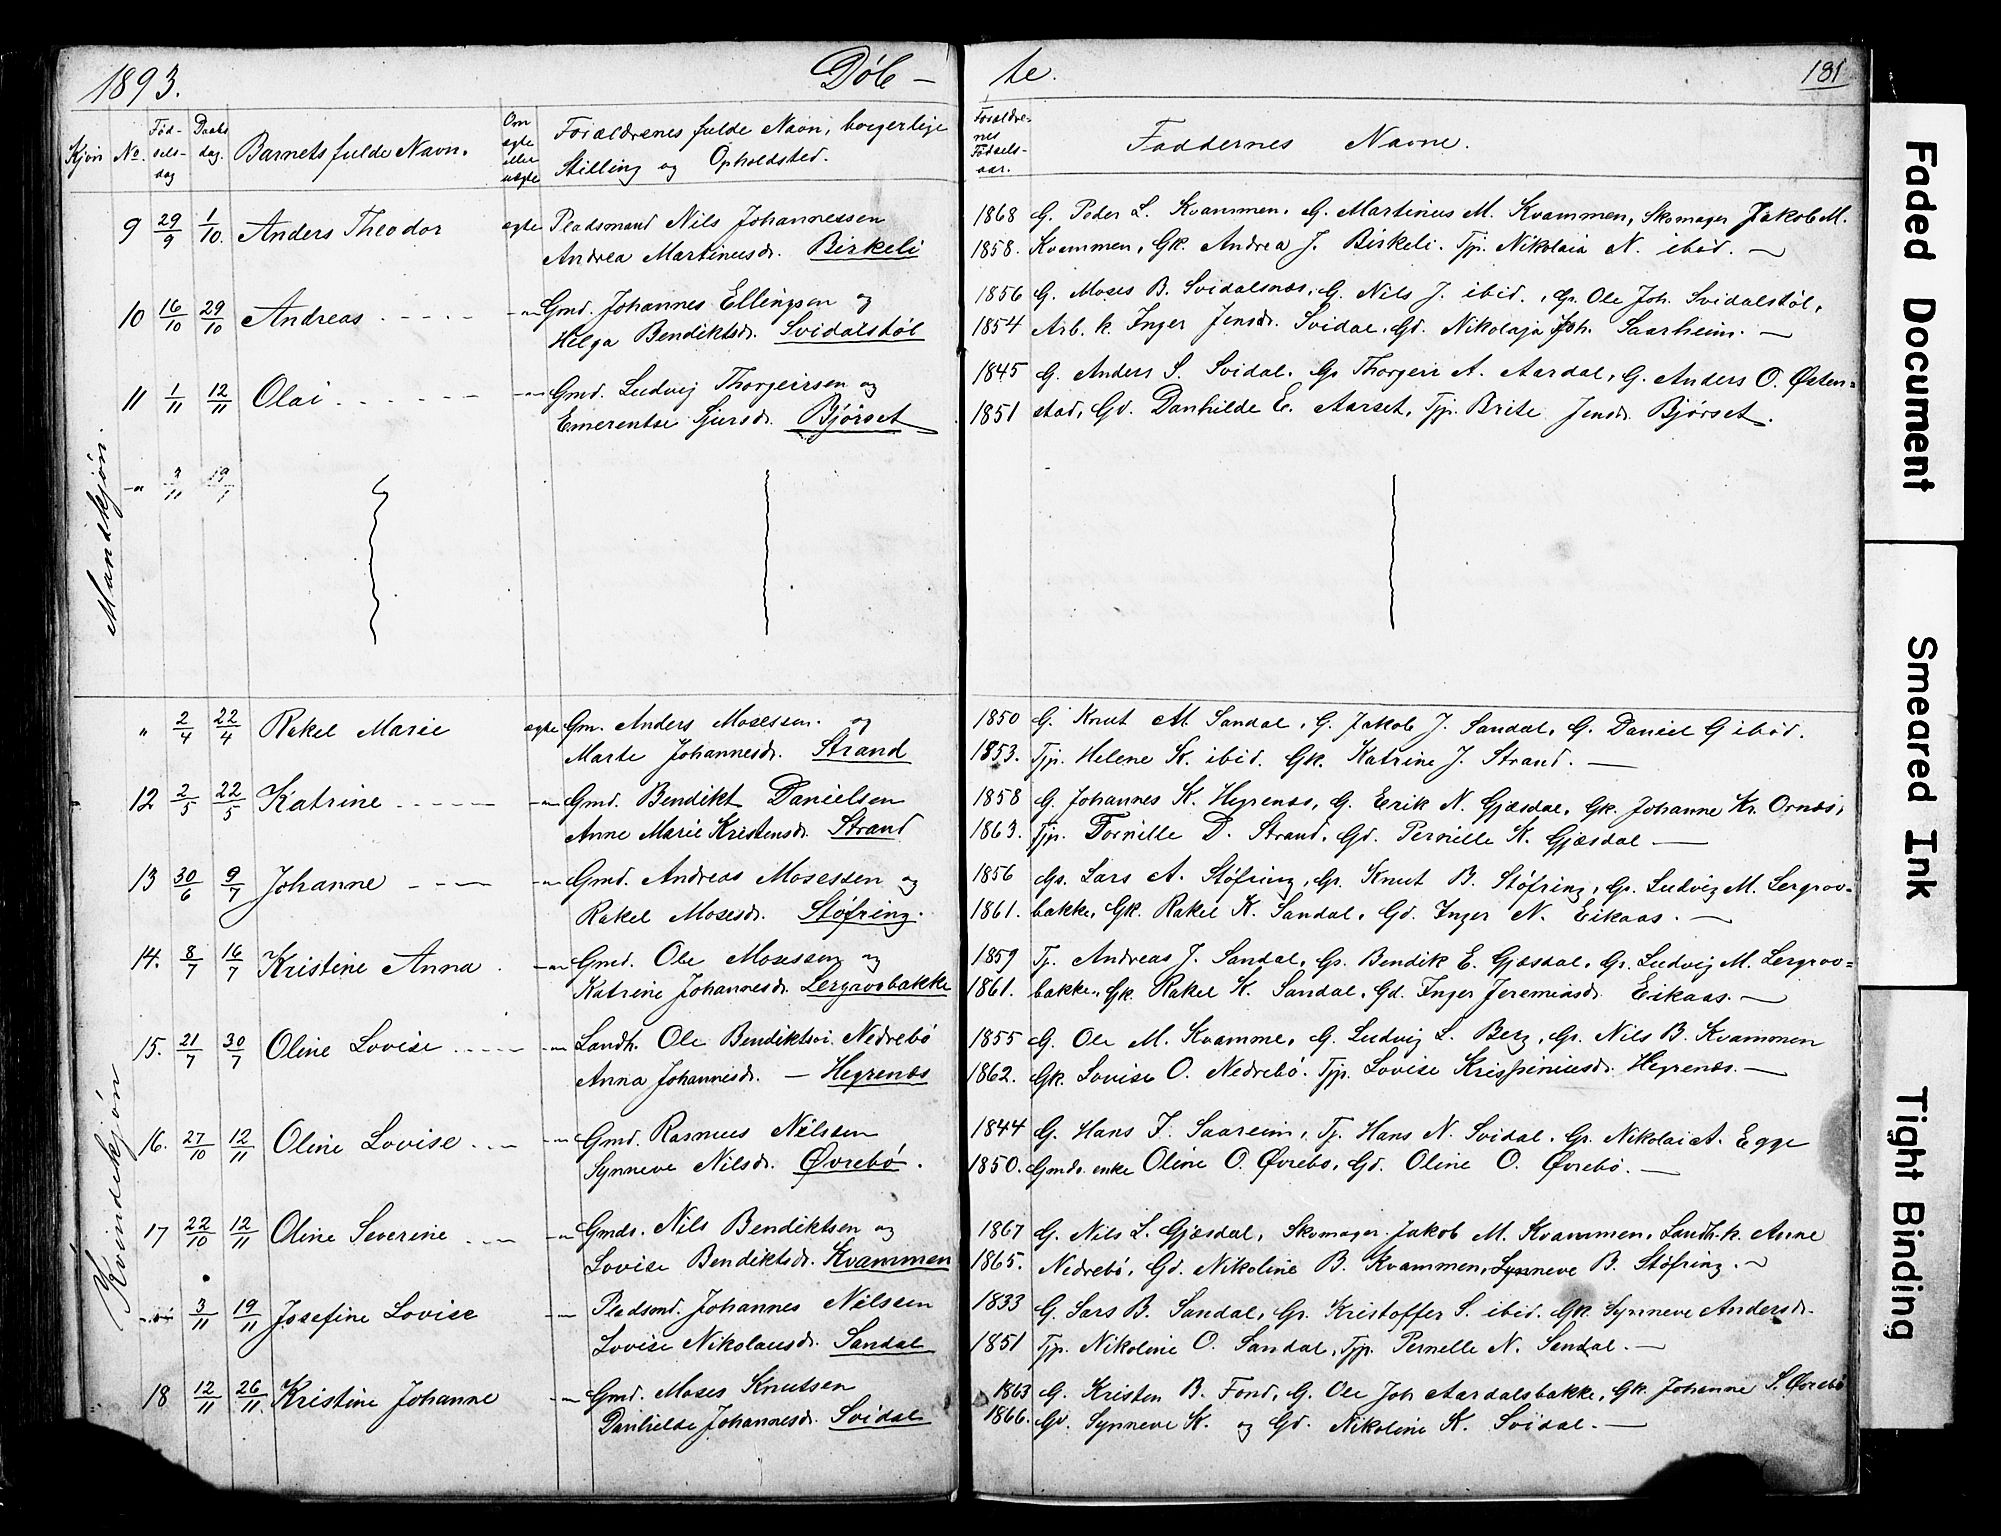 1893. Døb-
te. 181
Kjøn No. Fød-sels-dag Daabs dag. Barnets fulde Navn. Om ægte eller uægte Forældrenes fulde Navn, borgerlige Stilling og Opholdsted.
Forældre-nes Fødsels-aar. Faddernes Navne.
Mandkjøn.
9 29/9 1/10. Anders Theodor ægte Pladsmand Nils Johannessen
Andrea Martinusdr. Birkeli
1868 G. Peder L. Kvammen, G. Martinus M. Kvammen, Skomager Jakob M.
1858. Kvammen, Gk. Andrea J. Birkeli. Tjp. Nikolaia N. ibid. —
10 16/10 29/10 Andreas - - - - -"- Gmd. Johannes Ellingsen og
Helga Bendiktsdr. Svidalstøl
1856 G. Moses B. Svidalsnæs, G. Nils J. ibid., Gr. Ole Joh. Svidalstøl,
1854 Arb. k. Inger Jensdr. Svidal, Gd. Nikolaja Joh. Saarheim. —
11 1/11 12/11 Olai - - - - - -"- Gmd. Ludvig Thorgeirsen og
Emerentse Sjursdr. Bjørset
1845 G. Anders S. Svidal, Gs Thorgeir A. Aardal, G. Anders O. Østen=
1851 stad, Gd. Danhilde E. Aarset, Tjp. Brite Jensdr. Bjørset.
-"- 3/11 19/1
Kvindekjøn
" 2/4 22/4 Rakel Marie ægte Gm. Anders Mosessen. og
Marte Johannesdr. Strand
1850 G. Knut M. Sandal, G. Jakob J. Sandal, G. Daniel G ibid.
1853. Tjp. Helene K. ibid. Gk. Katrine J. Strand. —
12 2/5 22/5 Katrine - - - - -"- Gmd. Bendikt Danielsen
Anne Marie Kristensdr. Strand
1858 G. Johannes K. Hegrenæs, G. Erik N. Gjæsdal, Gk. Johanne Kr. Ornæs,
1863. Tjp. Tornille D. Strand, Gd. Pernille K. Gjæsdal —
13 30/6 9/7 Johanne - - - -"- Gmd. Andreas Mosessen og
Rakel Mosesdr. Støfring.
1856 Gs. Lars A. Støfring, Gr. Knut B. Støfring, Gr. Ludvig M. Lergrov=
1861. bakke, Gk. Rakel K. Sandal, Gd. Inger N. Eikaas. —
14. 8/7 16/7 Kristine Anna -"- Gmd. Ole Mosessen og
Katrine Johannesdr. Lergrovbakke
1859 Tj. Andreas J. Sandal, Gs. Bendik E. Gjæsdal, Gr. Ludvig M. Lergrov=
1861. bakke, Gk. Rakel K. Sandal, Gd. Inger Jeremiasdr. Eikaas. —
15. 21/7 30/7 Oline Lovise - - - - -"- Landh. Ole Bendiktsøn. Nedrebø
Anna Johannesdr. — Hegrenæs
1855 G. Ole M. Kvamme, G. Ludvig L. Berg, Gr. Nils B. Kvammen
1862. Gk. Lovise O. Nedrebø. Tjp. Lovise Krispiniusdr. Hegrenæs. —
16. 27/10 12/11 Oline Lovise - - -"- Gmd. Rasmus Nilssen
Synneve Nilsdr. Øvrebø.
1844 G. Hans J. Saareim, Tj. Hans N. Svidal, Gr. Nikolai A. Egge
1850. Gmds. enke Oline O. Øvrebø, Gd. Oline O. Øvrebø. —
17 22/10 12/11 Oline Severine - - -"- Gmds. Nils Bendiktsen og
Lovise Bendiktsdr. Kvammen
1867 G. Nils L. Gjæsdal, Skomager Jakob M. Kvammen, Landh. k. Anne
1865. Nedrebø, Gd. Nikoline B. Kvammen, Synneve B. Støfring. —
3/11 19/11 Josefine Lovise -"- Pladsmd. Johannes Nilssen
Lovise Nikolausdr. Sandal
1833 G. Lars B. Sandal, Gr. Kristoffer S. ibid. Gk. Synneve Andersdr.
1851 Tjp. Nikoline O. Sandal, Tjp. Pernelle N. Sandal. —
18 12/11 26/11. Kristine Johanne -"- Gmd. Moses Knutsen
Danhelde Johannesdr. Svidal
1863 G. Kristen B. Fond, G. Ole Joh Aardalsbakke, Gk. Johanne S. Øvrebø
1866. Gd. Synneve K. og Gd. Nikoline K. Svidal. —
Faded Document
Smeared Ink
Tight Binding